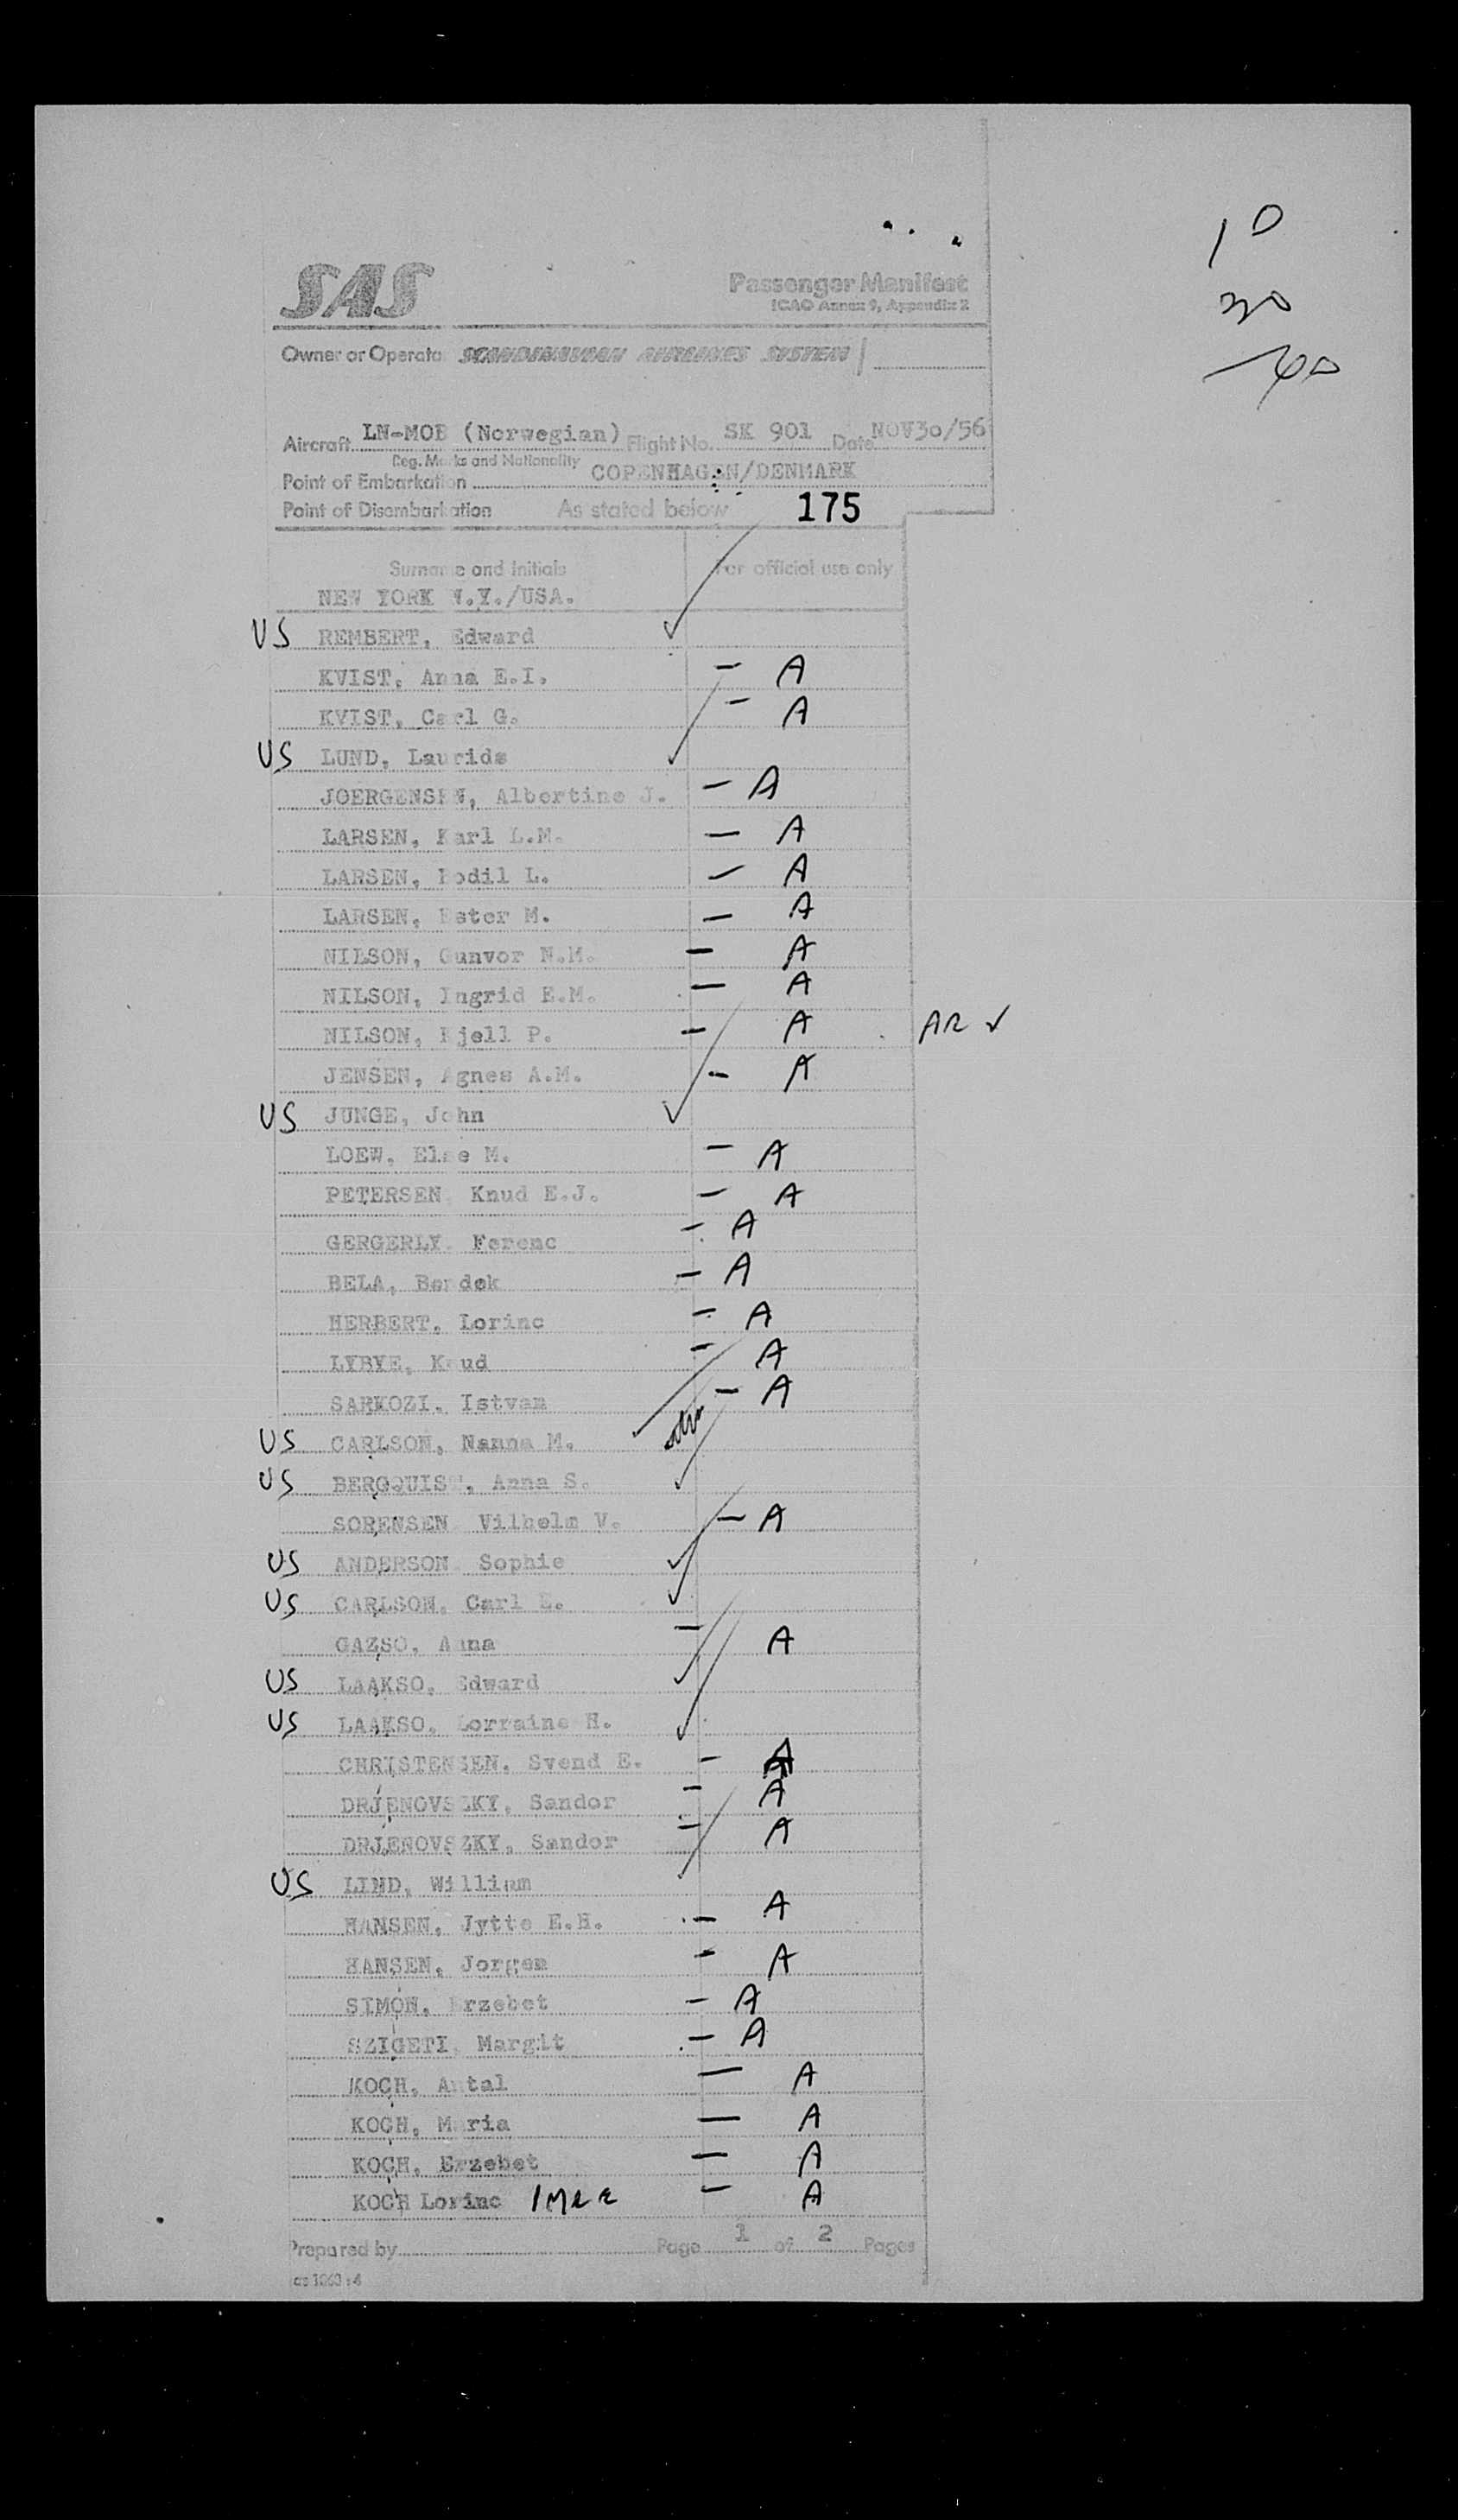 10
30
40
SAS Passenger Manifest
ICAO Annex 9, Appendix 2
Owner or Operator SCANDINAVIAN AIRLINES SYSTEM
Aircraft LN-MOB (Norwegian) Flight No. SK 901 Date NOV30/56
Reg. Marks and Nationality
Point of Embarkation COPENHAGEN/DENMARK
Point of Disembarkation As stated below 175
Surname and Initials For official use only
NEW YORK N.Y./USA.
US REMBERT, Edward ✓
KVIST, Anna E.I. - A
KVIST, Carl G. - A
US LUND, Laurids ✓
JOERGENSEN, Albertine J. - A
LARSEN, Karl L.M. - A
LARSEN, Bodil L. - A
LARSEN, Ester M. - A
NILSON, Gunvor N.M. - A
NILSON, Ingrid E.M. - A
NILSON, Kjell P. - A AR ✓
JENSEN, Agnes A.M. - A
US JUNGE, John ✓
LOEW, Else M. - A
PETERSEN, Knud E.J. - A
GERGERLY, Ferenc - A
BELA, Bendek - A
HERBERT, Lorinc - A
LYBYE, Knud - A
SARKOZI, Istvan - A
US CARLSON, Nanna M.
US BERGQUIST, Anna S. ✓
SORENSEN Vilhelm V. - A
US ANDERSON Sophie ✓
US CARLSON, Carl E. ✓
GAZSO, Anna - A
US LAAKSO, Edward ✓
US LAAKSO, Lorraine H. ✓
CHRISTENSEN, Svend E. - A
DRJENOVSZKY, Sandor - A
DRJENOVSZKY, Sandor - A
US LIND, William
HANSEN, Jytte E.H. - A
HANSEN, Jorgen - A
SIMON, Erzebet - A
SZIGETI, Margit - A
KOCH, Antal - A
KOCH, Maria - A
KOCH, Erzebet - A
KOCH Lorinc IMRE - A
Prepared by Page 1 of 2 Pages